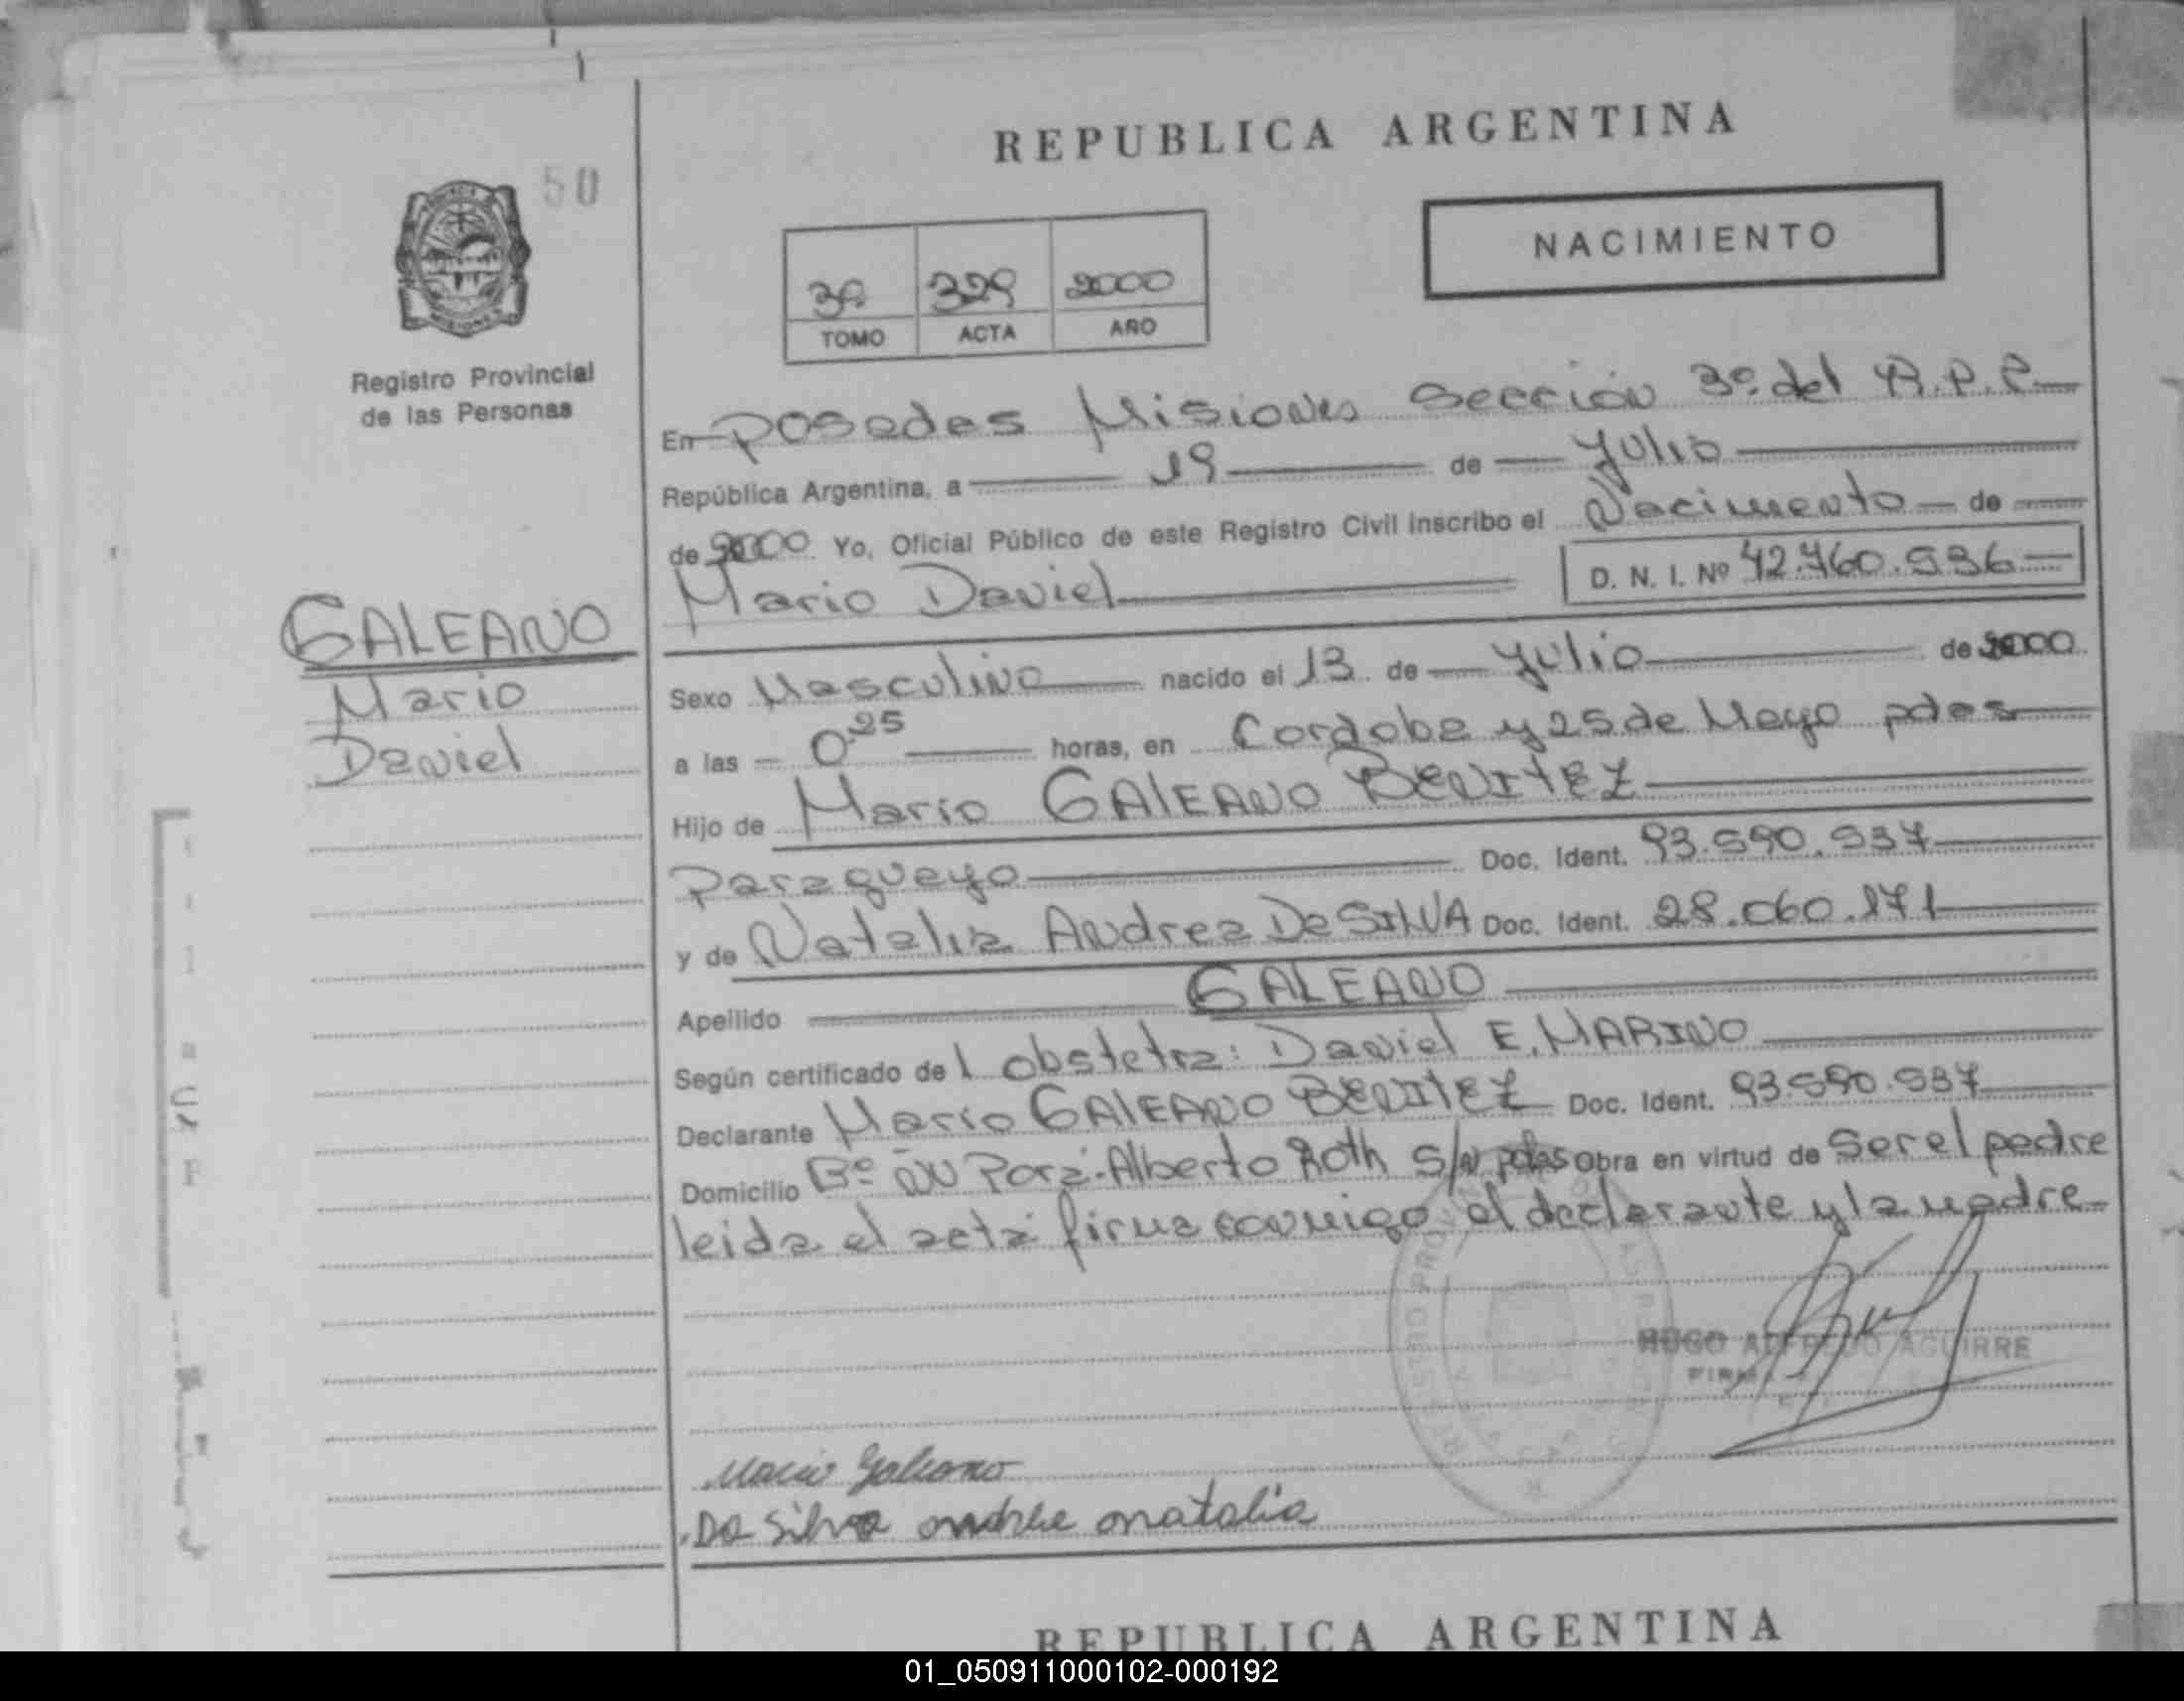 REPUBLICA ARGENTINA
50
NACIMIENTO
3º 329 2000
TOMO ACTA AÑO
Registro Provincial
de las Personas
En Posadas Misiones Sección 3º del R.P.P.
República Argentina, a 19 de Julio
de 2000 Yo, Oficial Público de este Registro Civil inscribo el Nacimiento de
Mario Daniel D. N. I. Nº 42.760.996
GALEANO
Mario
Daniel
Sexo Masculino nacido el 13 de Julio de 2000
a las 0.25 horas, en Cordoba y 25 de Mayo pdas
Hijo de Mario GALEANO BENITEZ
Paraguayo Doc. Ident. 93.590.937
y de Natalia Andrea Da SILVA Doc. Ident. 28.060.171
Apellido GALEANO
Según certificado de l obstetra: Daniel E. MARINO
Declarante Mario GALEANO BENITEZ Doc. Ident. 93.590.937
Domicilio Bº Alberto Roth S/N pdas Obra en virtud de Ser el padre
leida el acta firma conmigo el declarante y la madre
HUGO ALFREDO AGUIRRE
Mario Galeano
Da Silva andrea natalia
REPUBLICA ARGENTINA
01_050911000102-000192